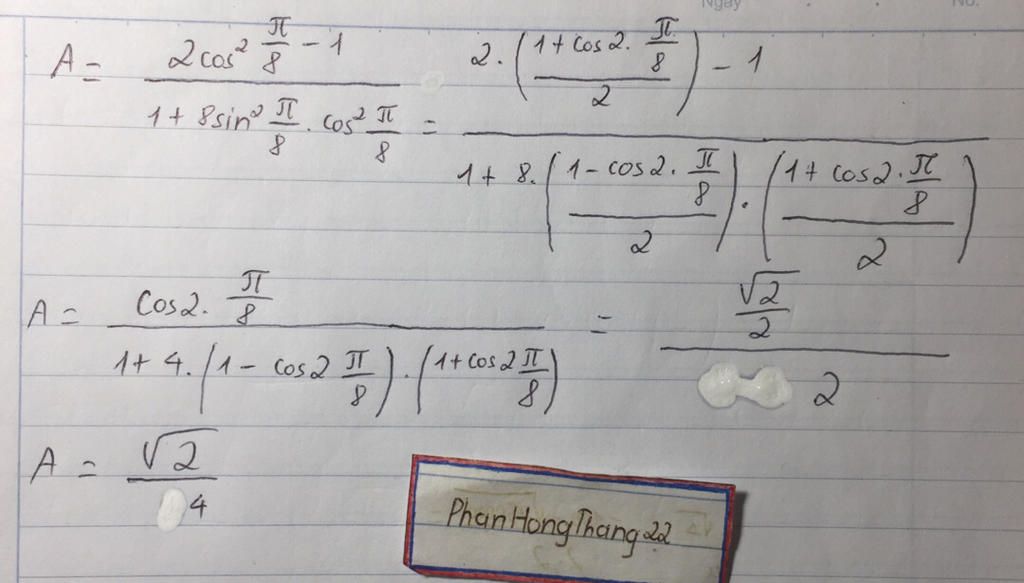 Ngày No.
A = \frac{2cos^2 \frac{π}{8} - 1}{1 + 8sin^2 \frac{π}{8} . cos^2 \frac{π}{8}} = \frac{2. (\frac{1 + cos 2. \frac{π}{8}}{2}) - 1}{1 + 8. (\frac{1 - cos2. \frac{π}{8}}{2}) . (\frac{1 + cos2. \frac{π}{8}}{2})}
A = \frac{cos2. \frac{π}{8}}{1 + 4. (1 - cos2 \frac{π}{8}) . (1 + cos2 \frac{π}{8})} = \frac{\frac{√2}{2}}{2}
A = \frac{√2}{4}
PhanHongThang22